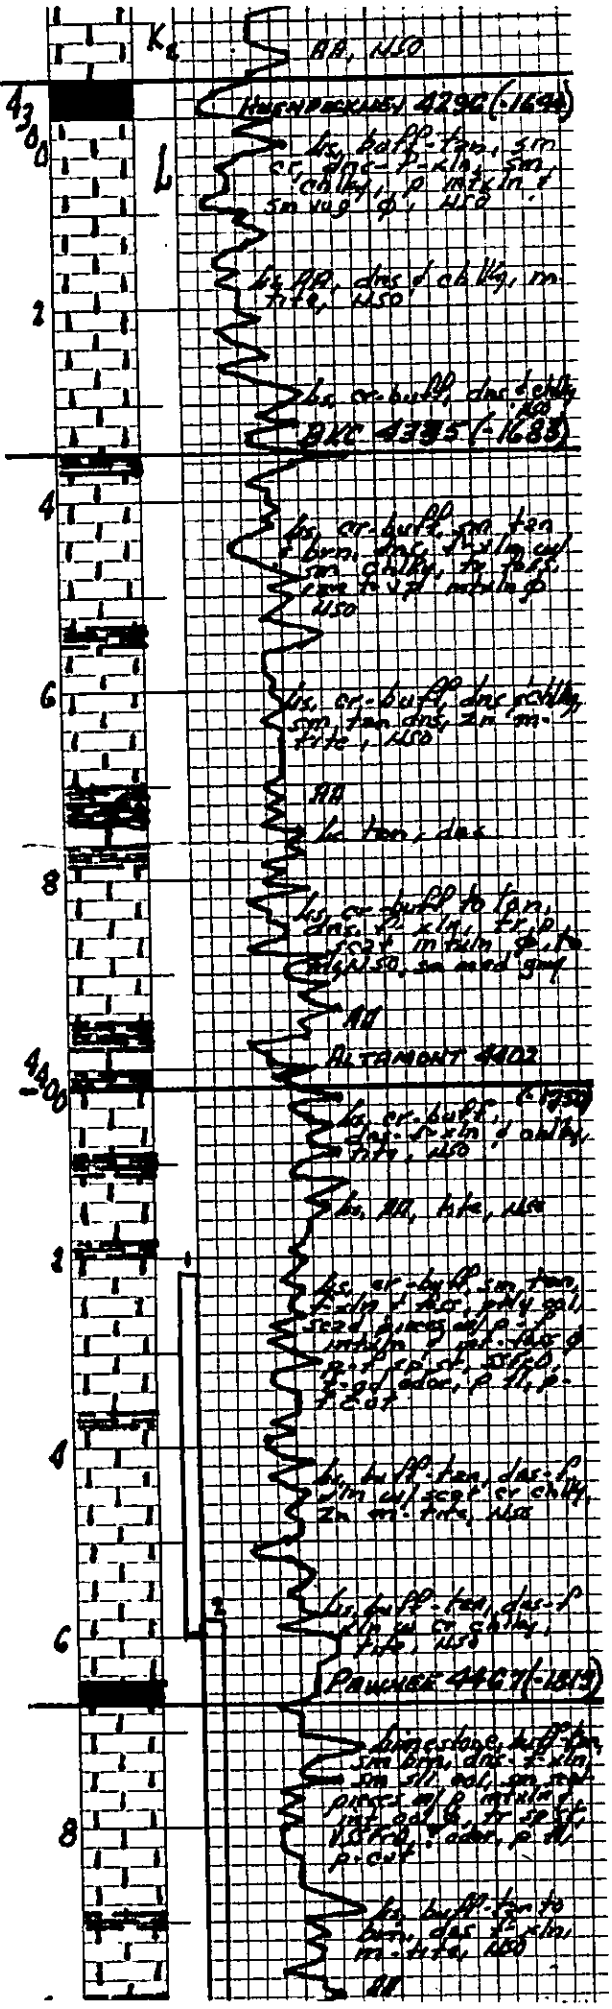 K2
AA, NSO
4300
HUSHPUCKNEY 4296 (-1644)
L
Ls, buff-tan, sm
cr, dns-f-xln, sm
chlky, p intxln &
sm vug φ, NSO
Ls AA, dns & chlky, m-
tite, NSO
2
Ls, cr-buff, dns & chlky
NSO
BKC 4335 (-1683)
4
Ls, cr-buff, sm tan
brn, dns, f-xln w/
sm chlky, tr foss
intxln φ
NSO
6
Ls, cr-buff, dns & chlky,
sm tan dns, Zn m-
tite, NSO
AA
Ls tan, dns
8
Ls, cr-buff to tan,
dns, f xln, tr p
scat intxln φ,
NSO, sm med gray
AA
4400
ALTAMONT 4402
(-1750)
Ls, cr-buff,
dns-f-xln & chlky,
tite, NSO
Ls, AA, tite, NSO
2
1
Ls, cr-buff, sm tan,
f-xln & foss, ptly ool,
scat pieces w/ p-f
intxln & foss φ
p-f sp st, SSFO,
f-gd odor, p fl, p-
f cut
4
Ls, buff-tan, dns-f
xln w/ scat cr chlky,
Zn m-tite, NSO
2
Ls, buff-tan, dns-f
xln w/ cr chlky,
tite, NSO
6
PAWNEE 4467 (-1815)
Limestone, buff-tan,
sm brn, dns-f-xln,
sm sli ool, sm scat
pieces w/ p intxln &
int ool φ, tr sp st,
VSSFO, odor, p fl,
p-cut
8
Ls, buff-tan to
brn, dns f-xln,
m-tite, NSO
AA